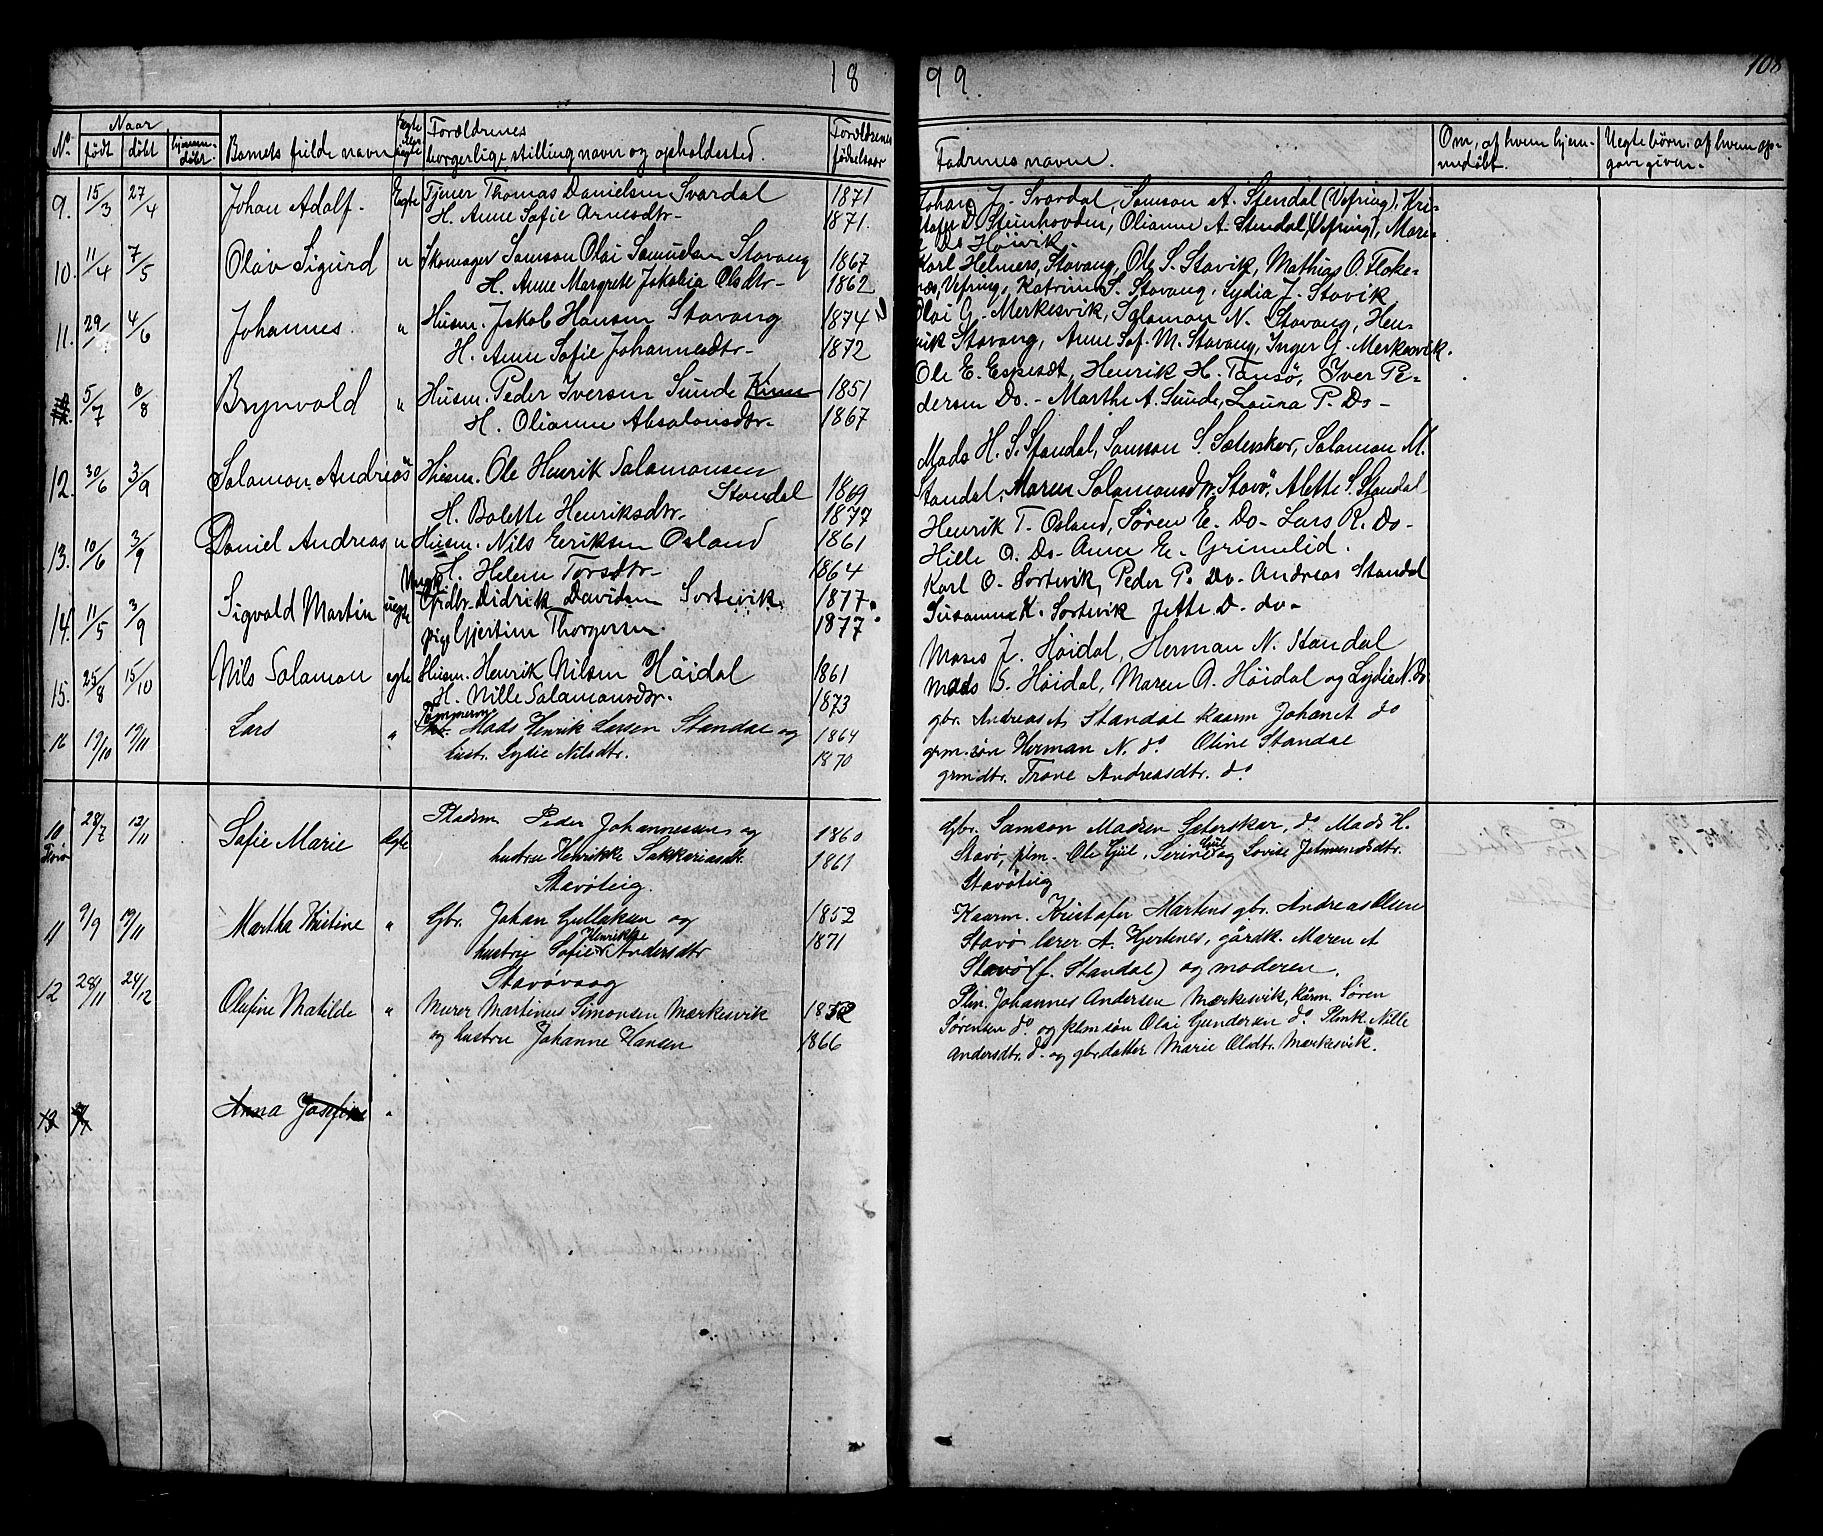 18 99. 108
No. Naar født døbt hjemmedøbt Barnets fulde navn Ægte eller uægte Forældrenes borgerlige stilling navn og opholdssted. Forældrenes fødselsaar
Faddernes navne. Om, af hvem hjemmedøbt. Uegte børn: af hvem opgave given.
9. 15/3 27/4 Johan Adolf. Egte Tjener Thomas Danielsen Svardal 1871
H. Anne Sofie Arnesdtr. 1871.
Johan J. Svardal, Samson A. Stendal (Vefring), Kri-
stofer D. Steinhovden, Olianne A. Stendal (Vefring), Mari-
e Do Høivik.
10. 11/4 7/5 Olav Sigurd " Skomager Samson Olai Samuelsen Stavang 1867
H. Anne Margrete Jakobia Olsdtr. 1862
Karl Helmers, Stavang, Ole S. Stavik, Mathias O. Floke-
næs, Vefring, Katrine S. Stavang, Lydia J. Stavik
11. 29/ 4/6 Johannes. " Husm. Jakob Hansen Stavang 1874
H. Anne Sofie Johannesdtr. 1872
Olai G. Merkesvik, Salamon N. Stavang, Hen-
rik Stavang, Anne Sof. M. Stavang, Inger G. Merkesvik.
5/7 6/8 Brynvald " Husm. Peder Iversen Sunde Kinn 1851
H. Olianne Absalonsdtr. 1867
Ole E. Espesdt, Henrik H. Tansø, Iver Pe-
dersen Do. - Marthe A. Sunde, Laura P. Do -
12. 30/6 3/9 Salamon Andreas " Husm. Ole Henrik Salamonsen
Standal 1869
H. Bolette Henriksdtr. 1877
Mads H. S. Standal, Samson S. Sæterskar, Salamon M.
Standal, Maren Salamonsdtr. Stavø, Alette S. Standal
13. 10/6 3/9 Daniel Andreas " Husm. Nils Eeriksen Osland 1861
H. Helene Torsdtr. 1864
Henrik T. Osland, Søren E. Do - Lars R. Do -
Hille O. Do - Anne E. Grimelid.
14. 11/5 3/9 Sigvald Martin uegte Ungk. Gbr. Didrik Davidsen Sortevik 1877.
pige Gjertine Thorgersen. 1877
Karl O. Sortevik, Peder P. Do - Andreas Standal
Susanne K. Sortevik Jette D. do -
15. 25/8 15/10 Nils Salamon egte Husm. Henrik Nilsen Høidal 1861
H. Nille Salamonsdtr. 1873
Moses J. Høidal, Herman N. Standal
Mads S. Høidal, Maren A. Høidal og Lydia N. Do
16 19/10 19/11 Lars " Tømmerm. Mads Henrik Larsen Standal og 1864
hustr. Lydie Nilsdtr. 1870
gbr. Andreas A. Standal kaarm Johan A do
grm. søn Herman N. do Oline Standal
grmdtr. Trone Andreasdtr. do
10 Florø 28/7 12/11 Sofie Marie Ægte Pladsm Peder Johannessen og 1860
hustru Henrikke Sakkariasdtr. 1861
Stavøteig.
Gbr. Samson Madsen Sæterskar, do Mads H.
Stavø, plm. Ole Gjil, Serine Gjil og Lovise Jetmundsdtr.
Stavøteig
11 9/9 19/11 Martha Kristine " Gbr. Johan Gullaksen og 1852
hustru Sofie Henrikke Andersdtr 1871
Stavøvaag
Kaarm. Kristofer Martens gbr. Andreas Olsen
Stavø lærer A. Hjertenes, gårdk. Maren A
Stavø (f. Standal) og moderen.
12 28/11 24/12 Olufine Matilde " Murer Martinus Simonsen Mærkesvik 1852
og hustru Johanne Hansen 1866
Plm. Johannes Andersen Mærkesvik, kårm. Søren
Sørensen do og plmsøn Olai Gundersen do Plmk. Nille
Andersdtr. do og gbrdatter Marie Olsdtr. Mærkesvik.
13 Anna Josefine "